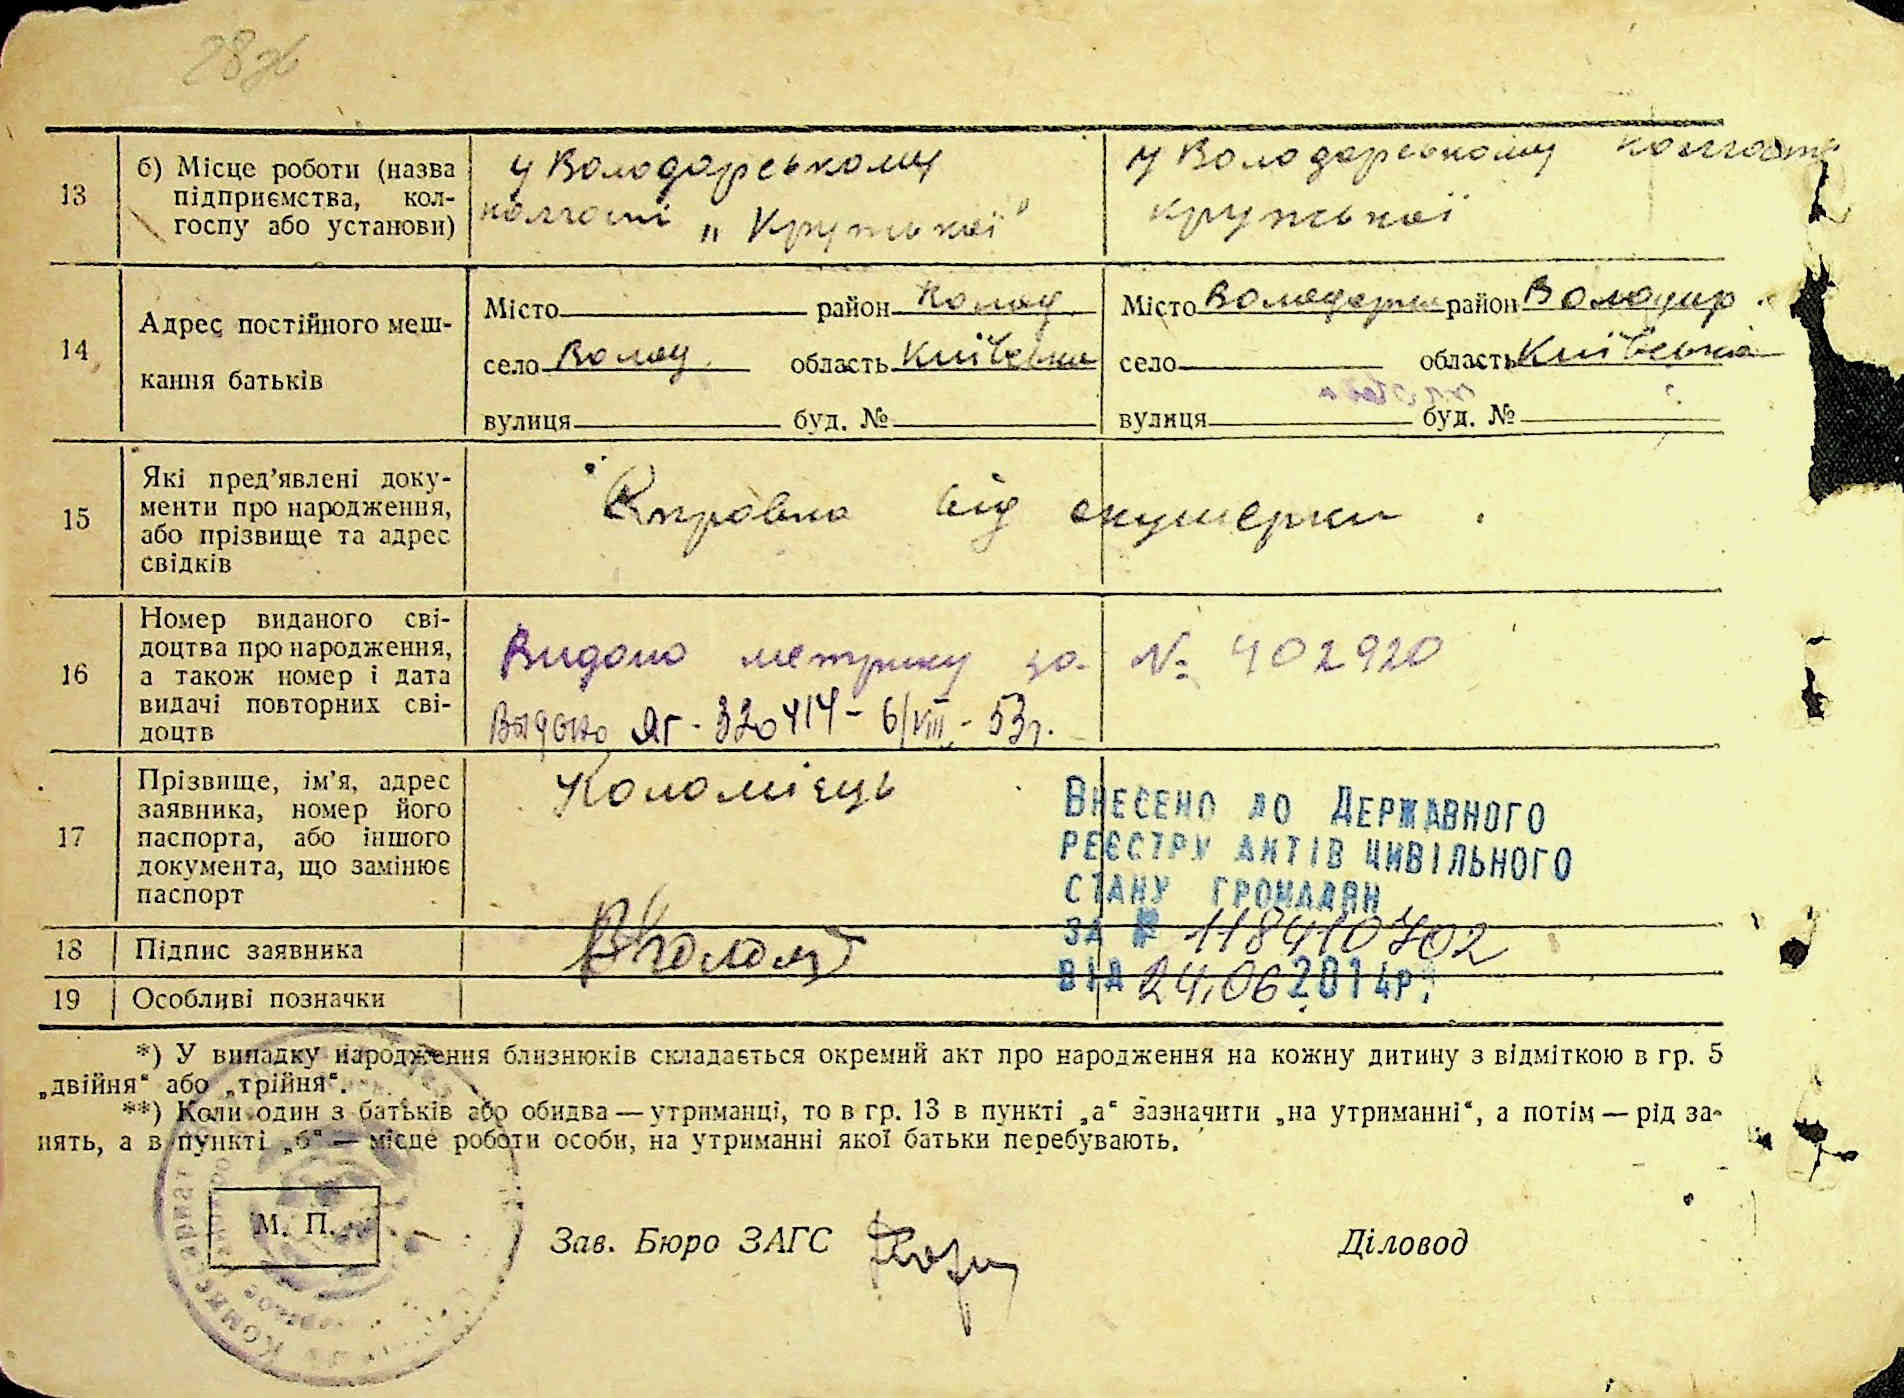 28 зв
13
б) Місце роботи (назва
підприємства, кол-
госпу або установи)
у Володарському
колгоспі „Крупської"
у Володарському колгоспі
крупської
14
Адрес постійного меш-
кання батьків
Місто район Волод
село Волод. область Київська
вулиця буд. №
Місто Володарка район Володар.
село область Київська
вулиця буд. №
15
Які пред'явлені доку-
менти про народження,
або прізвище та адрес
свідків
Справка від акушерки.
16
Номер виданого сві-
доцтва про народження,
а також номер і дата
видачі повторних сві-
доцтв
Видано метрику за № 402920
Выдано ЯГ-320414-6/VIII-53г.
17
Прізвище, ім'я, адрес
заявника, номер його
паспорта, або іншого
документа, що замінює
паспорт
Коломієць
Внесено до Державного
реєстру актів цивільного
стану громадян
за № 118410702
від 24.06 2014р.
18
Підпис заявника
19
Особливі позначки
*) У випадку народження близнюків складається окремий акт про народження на кожну дитину з відміткою в гр. 5
„двійня" або „трійня".
**) Коли один з батьків або обидва — утриманці, то в гр. 13 в пункті „а" зазначити „на утриманні", а потім — рід за-
нять, а в пункті „б" — місце роботи особи, на утриманні якої батьки перебувають.
М. П.
Зав. Бюро ЗАГС
Діловод